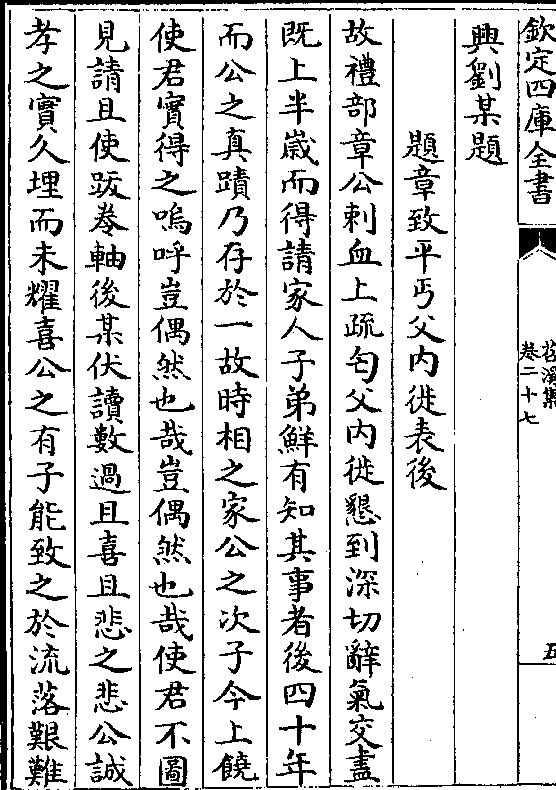 欽定四庫全書
苕溪集
卷二十七
五
興劉某題
題章致平丐父内徙表後
故禮部章公刺血上疏匄父内徙懇到深切辭氣交盡
既上半嵗而得請家人子弟鮮有知其事者後四十年
而公之真蹟乃存於一故時相之家公之次子今上饒
使君實得之嗚呼豈偶然也哉豈偶然也哉使君不圖
見請且使跋卷軸後某伏讀數過且喜且悲之悲公誠
孝之實久埋而未耀喜公之有子能致之於流落艱難